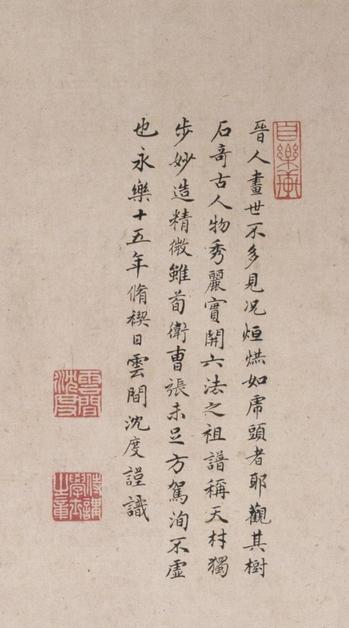 晉人畫世不多見况烜烘如虎頭者耶觀其樹
石奇古人物秀麗實開六法之祖譜稱天材獨
步妙造精微雖荀衛曹張未足方駕洵不虛
也永樂十五年脩禊日雲間沈度謹識
自樂
雲間沈度
侍講學士之章